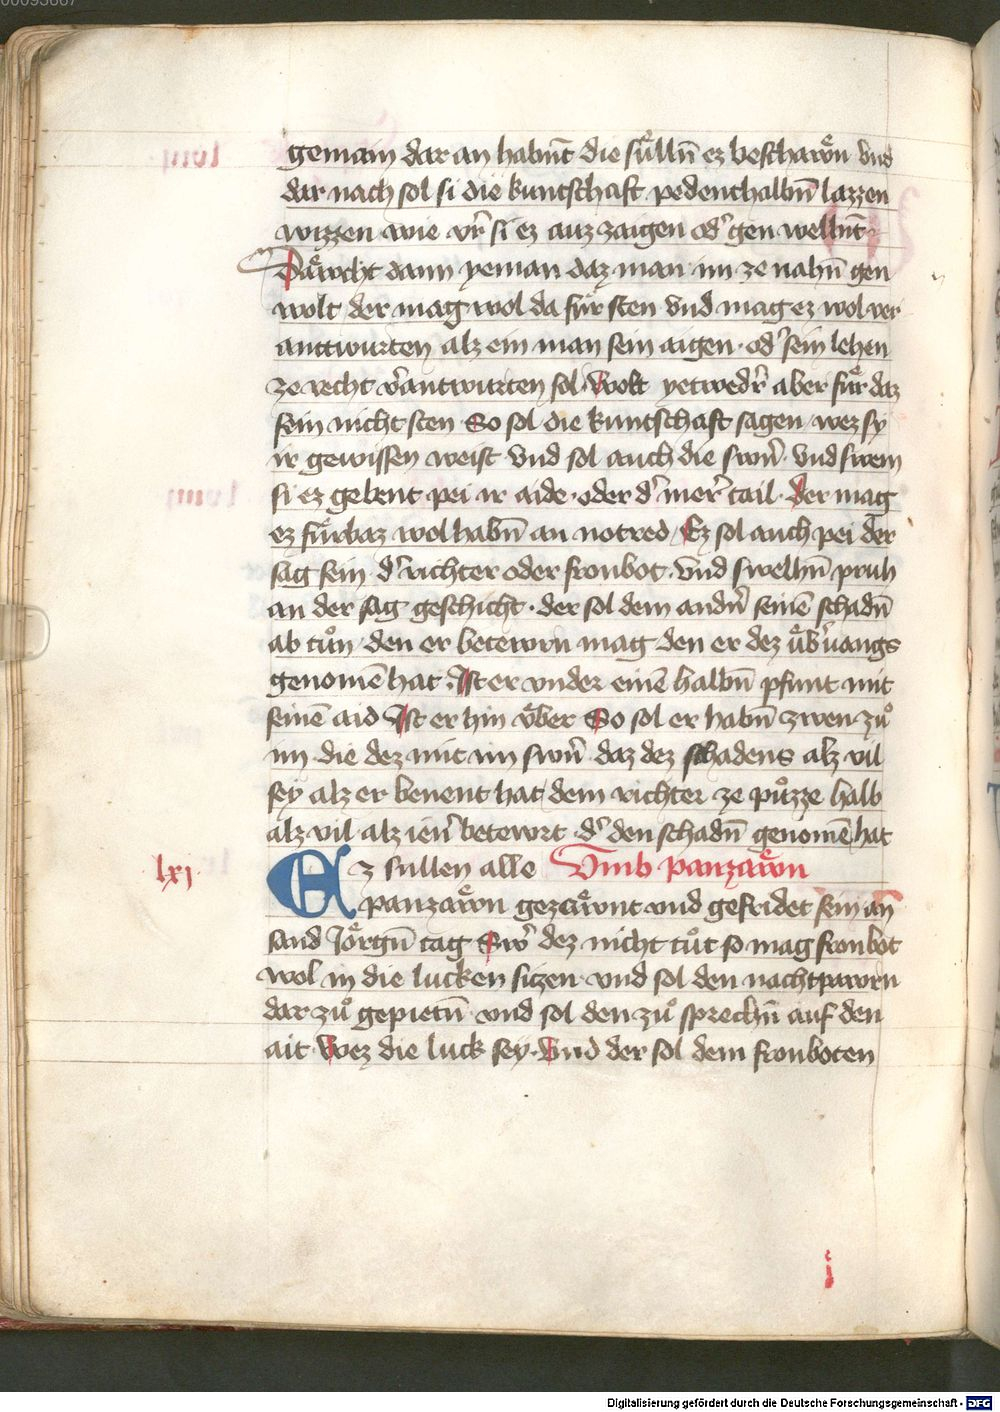 gemain dar an habnt̄ die suͤlln̄ ez beschawͤn vnd
dar nach sol si die kuntschaft pedenthalbn̄ lazzen
wizzen wie vr̄ si ez auz zaigen od᾽ gen wellnt̄
Däwcht dann yeman daz man im ze nahn̄ gen
wolt der mag wol da fuͤr sten vnd mag ez wol ver
antwurten alz ein man sein aigen · od᾽ sein lehen
ze recht v᾽antwurten sol Wolt yetwedr᾽ aber fuͤr daz
sein nicht sten So sol die kuntschaft sagen wez sy
ir gewissen weist vnd sol auch die swn᾽ · vnd swem
si ez gebent pei ir aide · oder d᾽ mer᾽ tail · der mag
ez fuͤrbaz wol habn̄ an notred / Ez sol auch pei der
sag sein d᾽ richter oder fronbot · vnd swelhn̄ pruh
an der sag geschicht · der sol dem andn᾽ seinē schadn̄
ab tuͦn · den er betewrn mag den er dez uͤb᾽uangs
genomē hat · Ist er vnder einē halbn̄ pfunt mit
seinē aid Ist er hin vͤber So sol er habn̄ zwen zuͦ
im die dez mit im swn᾽ daz dez schadens alz vil
sey alz er benent hat / dem richter ze puͦzze halb
alz vil alz ien᾽ betewrt d᾽ den schadn̄ genomē hat
lxj · Ez sullen alle Vmb panzawͤn
panzawͤn gezawͤnt vnd gefridet sein an
sand Joͤrgn̄ tag Sw᾽ dez nicht tuͦt so mag fronbot
wol in die lucken sitzen · vnd sol den nachtpawrn
dar zuͦ gepietn̄ vnd sol den zuͦ sprechn̄ auf den
ait · Wez die luck sey · Vnd der sol dem fronboten
Digitalisierung gefördert durch die Deutsche Forschungsgemeinschaft - DFG